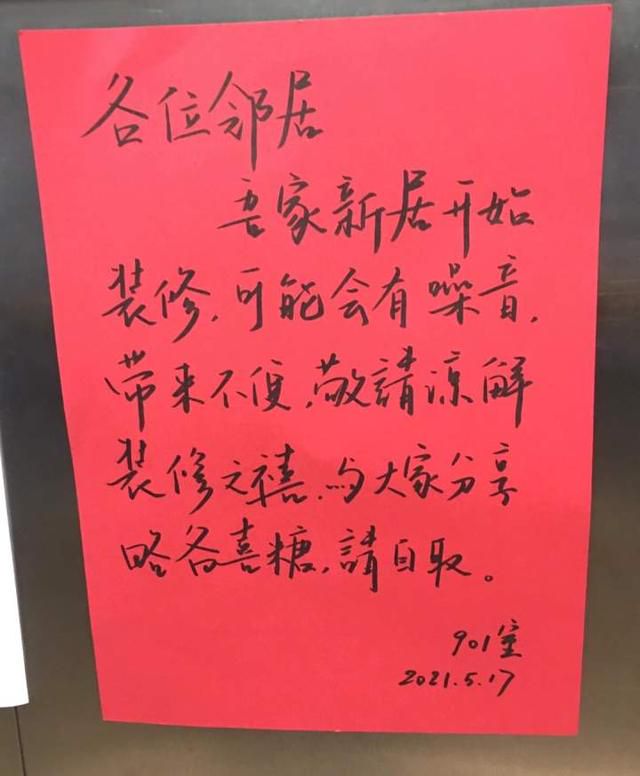 各位邻居
吾家新居开始
装修,可能会有噪音,
带来不便,敬請凉解
装修之禧,与大家分享
略备喜糖,請自取。
901室
2021.5.17